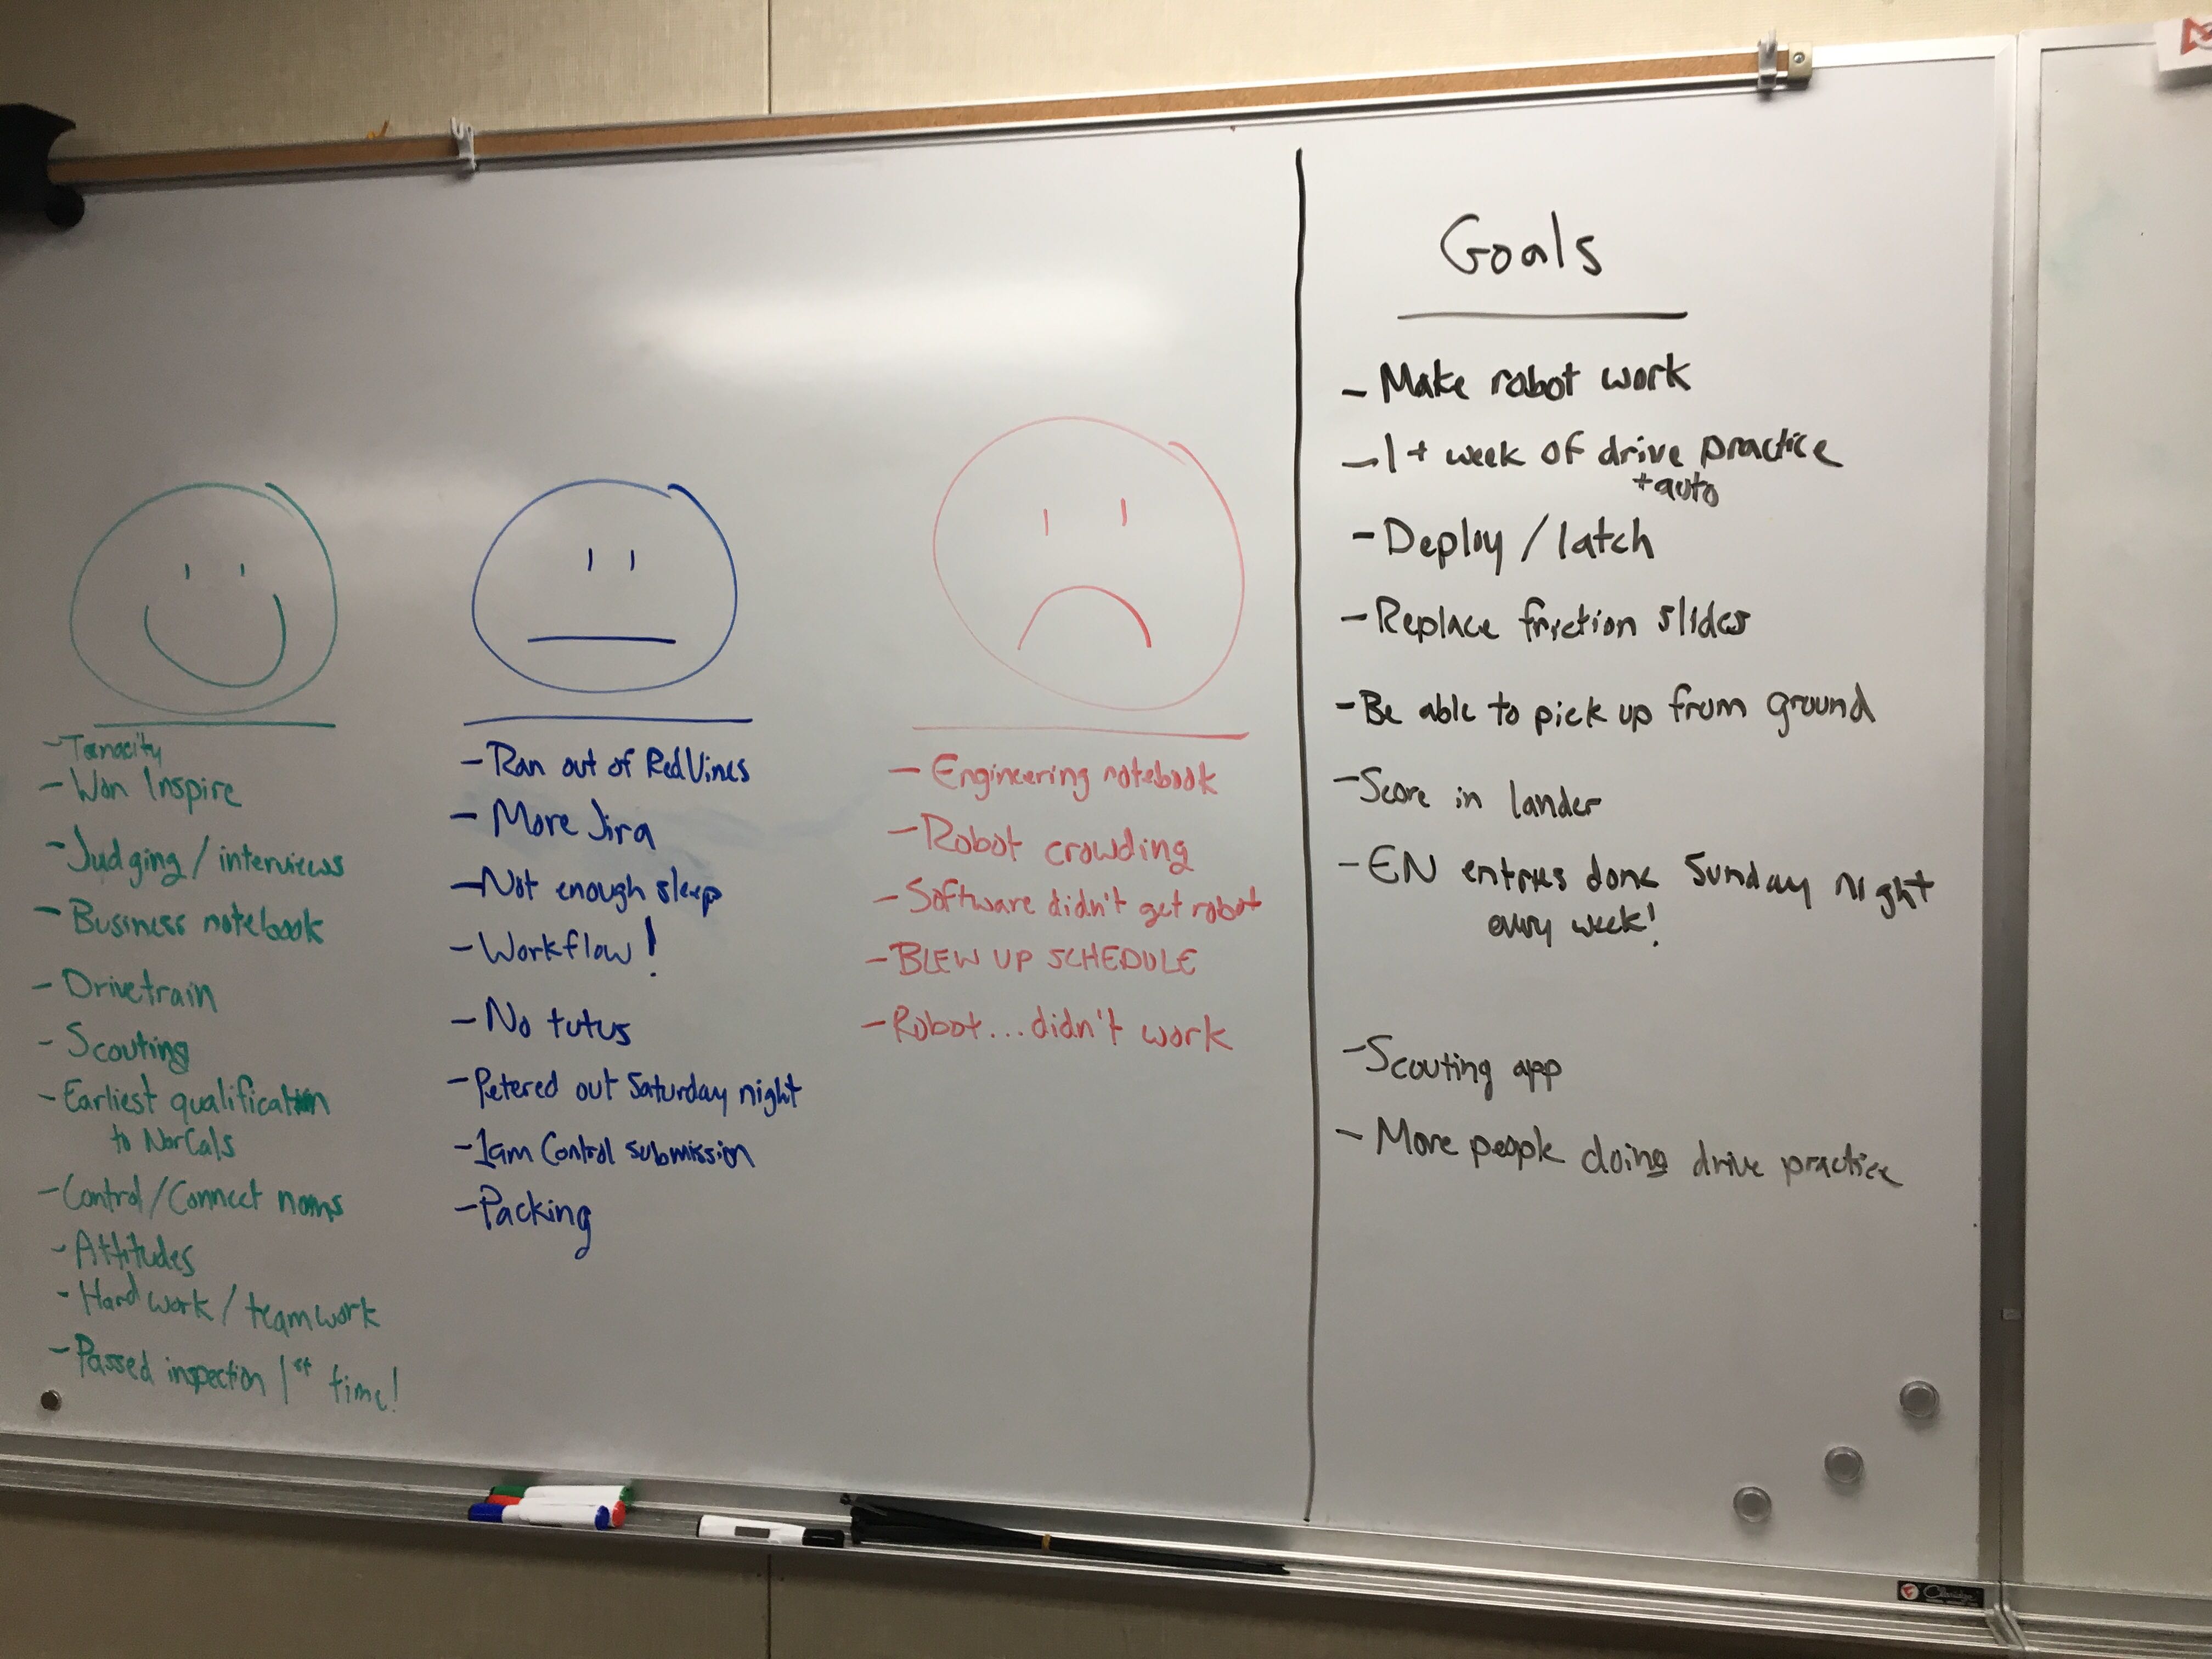 - Tenacity
- Won Inspire
- Judging / interviews
- Business notebook
- Drivetrain
- Scouting
- Earliest qualification
to NorCals
- Control / Connect noms
- Attitudes
- Hard work / teamwork
- Passed inspection 1st time!
- Ran out of RedVines
- More Jira
- Not enough sleep
- Workflow!
- No tutus
- Petered out Saturday night
- 1am Control submission
- Packing
- Engineering notebook
- Robot crowding
- Software didn't get robot
- BLEW UP SCHEDULE
- Robot... didn't work
Goals
- Make robot work
- 1+ week of drive practice
+ auto
- Deploy / latch
- Replace friction slides
- Be able to pick up from ground
- Score in lander
- EN entries done Sunday night
every week!
- Scouting app
- More people doing drive practice